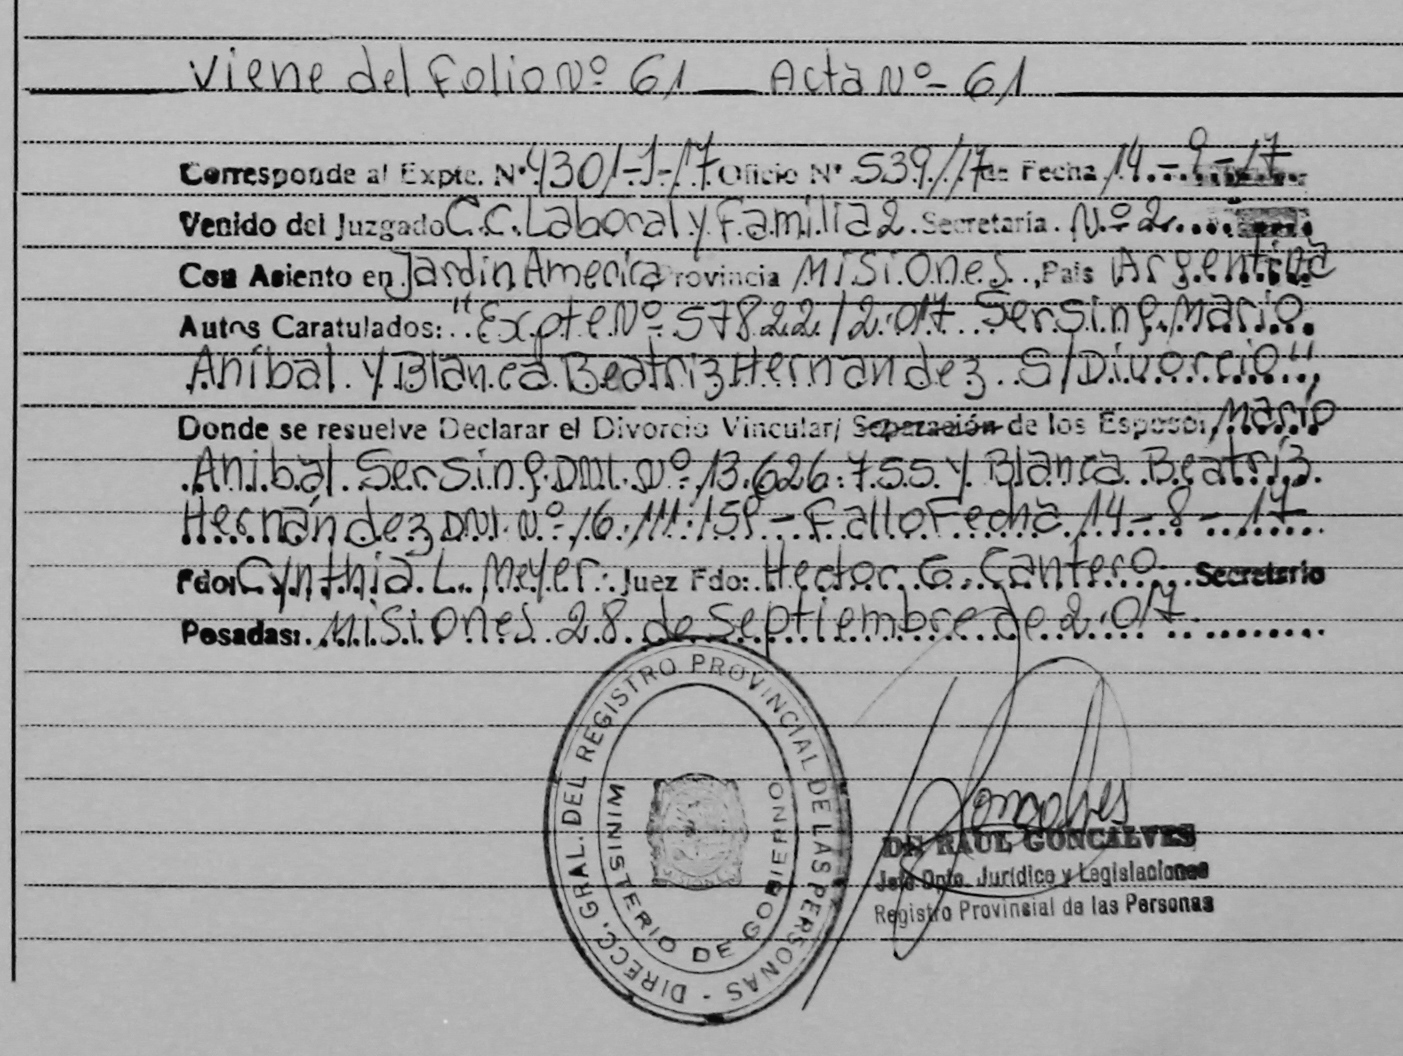 Viene del Folio Nº 61 — Acta Nº 61
Corresponde al Expte. Nº 430/-J-/17 Oficio Nº 539//17 de Fecha 14.-9-17.
Venido del Juzgado C.C. Laboral y Familia 2. Secretaría. Nº 2....
Con Asiento en Jardín America Provincia Misiones., País Argentina
Autos Caratulados: "Expte Nº 57822/2.017. Sersing, Mario.
Aníbal. y Blanca Beatriz Hernandez. S/Divorcio",
Donde se resuelve Declarar el Divorcio Vincular/ Separación de los Esposos, Mario
Anibal. Sersing. DNI. Nº 13.626.755 y Blanca. Beatriz.
Hernández DNI. Nº 16.111.159 - Fallo Fecha 14-8-17
Fdo: Cynthia. L. Meyer. Juez Fdo: Hector. G. Cantero. Secretario
Posadas: Misiones 28 de Septiembre de 2.017
DIRECC. GRAL. DEL REGISTRO PROVINCIAL DE LAS PERSONAS -
MINISTERIO DE GOBIERNO
Goncalves
DE RAUL GONCALVES
Jefe Dpto. Jurídico y Legislaciones
Registro Provincial de las Personas